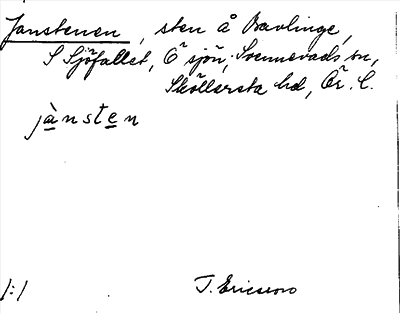 Janstenen, sten å Bavlinge,
S Sjöfallet, Ö sjön, Svennevads sn,
Sköllersta hd, Ör. l.
jànsten
/:/
T. Ericsson